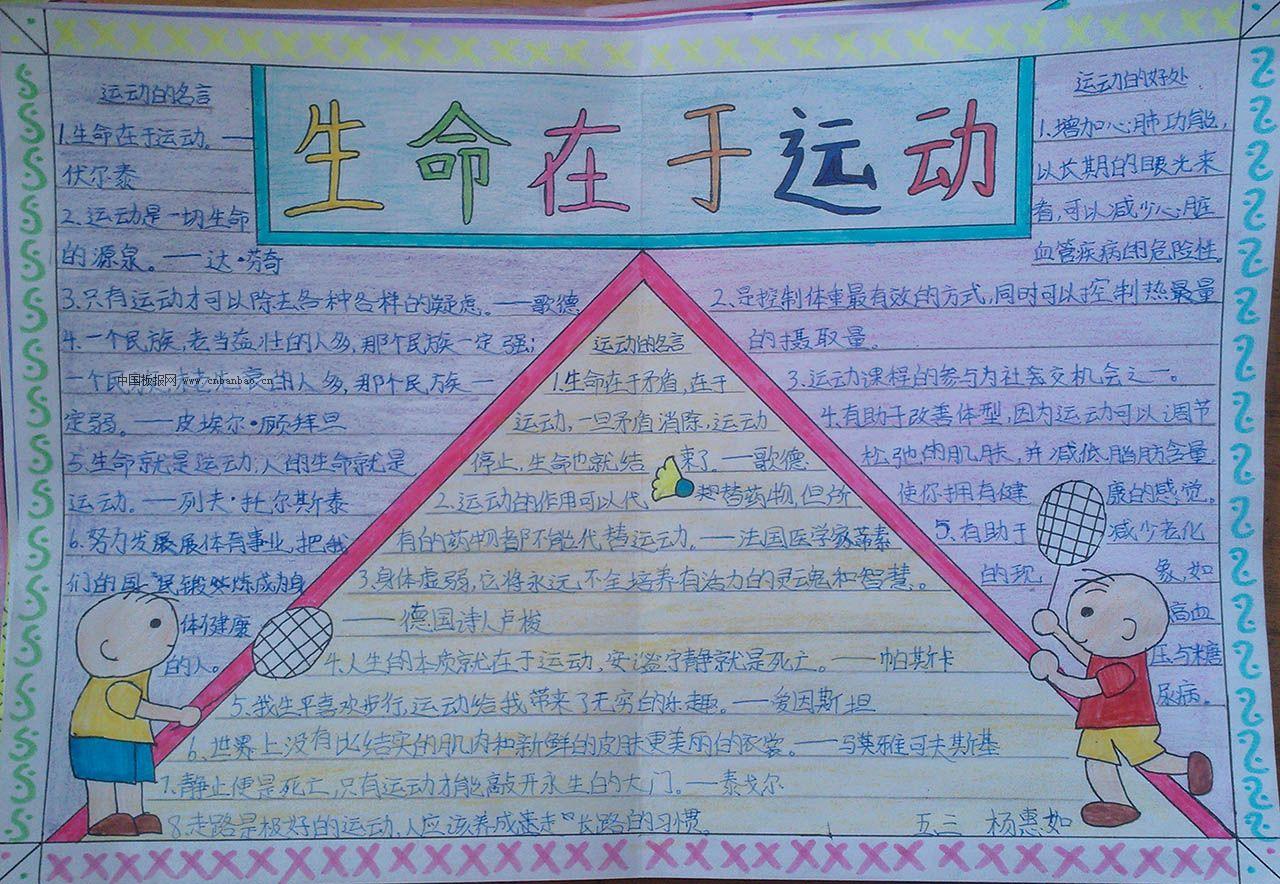 生命在于运动
运动的名言
1.生命在于运动。——
伏尔泰
2.运动是一切生命
的源泉。——达·芬奇
3.只有运动才可以除去各种各样的疑虑。——歌德
4.一个民族,老当益壮的人多,那个民族一定强;
一个民族 的人多,那个民族一
定弱。——皮埃尔·顾拜旦
5.生命就是运动,人的生命就是
运动。——列夫·托尔斯泰
6.努力发展展体育事业,把我
们的国 民锻炼成为身
体健康
的人。
中国板报网 www.cnbanbao.cn
运动的名言
1.生命在于矛盾,在于
运动,一旦矛盾消除,运动
停止,生命也就结束了。——歌德
2.运动的作用可以代替药物,但所
有的药物都不能代替运动。——法国医学家蒂素
3.身体虚弱,它将永远不会培养有活力的灵魂和智慧。
——德国诗人卢梭
4.人生的本质就在于运动,安谧宁静就是死亡。——帕斯卡
5.我生平喜欢步行,运动给我带来了无穷的乐趣。——爱因斯坦
6.世界上没有比结实的肌肉和新鲜的皮肤更美丽的衣裳。——马英雅可夫斯基
7.静止便是死亡,只有运动才能敲开永生的大门。——泰戈尔
8.走路是极好的运动,人应该养成 走 长路的习惯。
五.三 杨惠如
运动的好处
1.增加心肺功能,
以长期的眼光来
看,可以减少心脏
血管疾病的危险性。
2.是控制体重最有效的方式,同时可以控制热最量
的摄取量。
3.运动课程的参与为社会交机会之一。
4.有助于改善体型,因为运动可以调节
松弛的肌肤,并减低脂肪含量
使你拥有健康的感觉。
5.有助于减少老化
的现象,如
高血
压与糖
尿病。